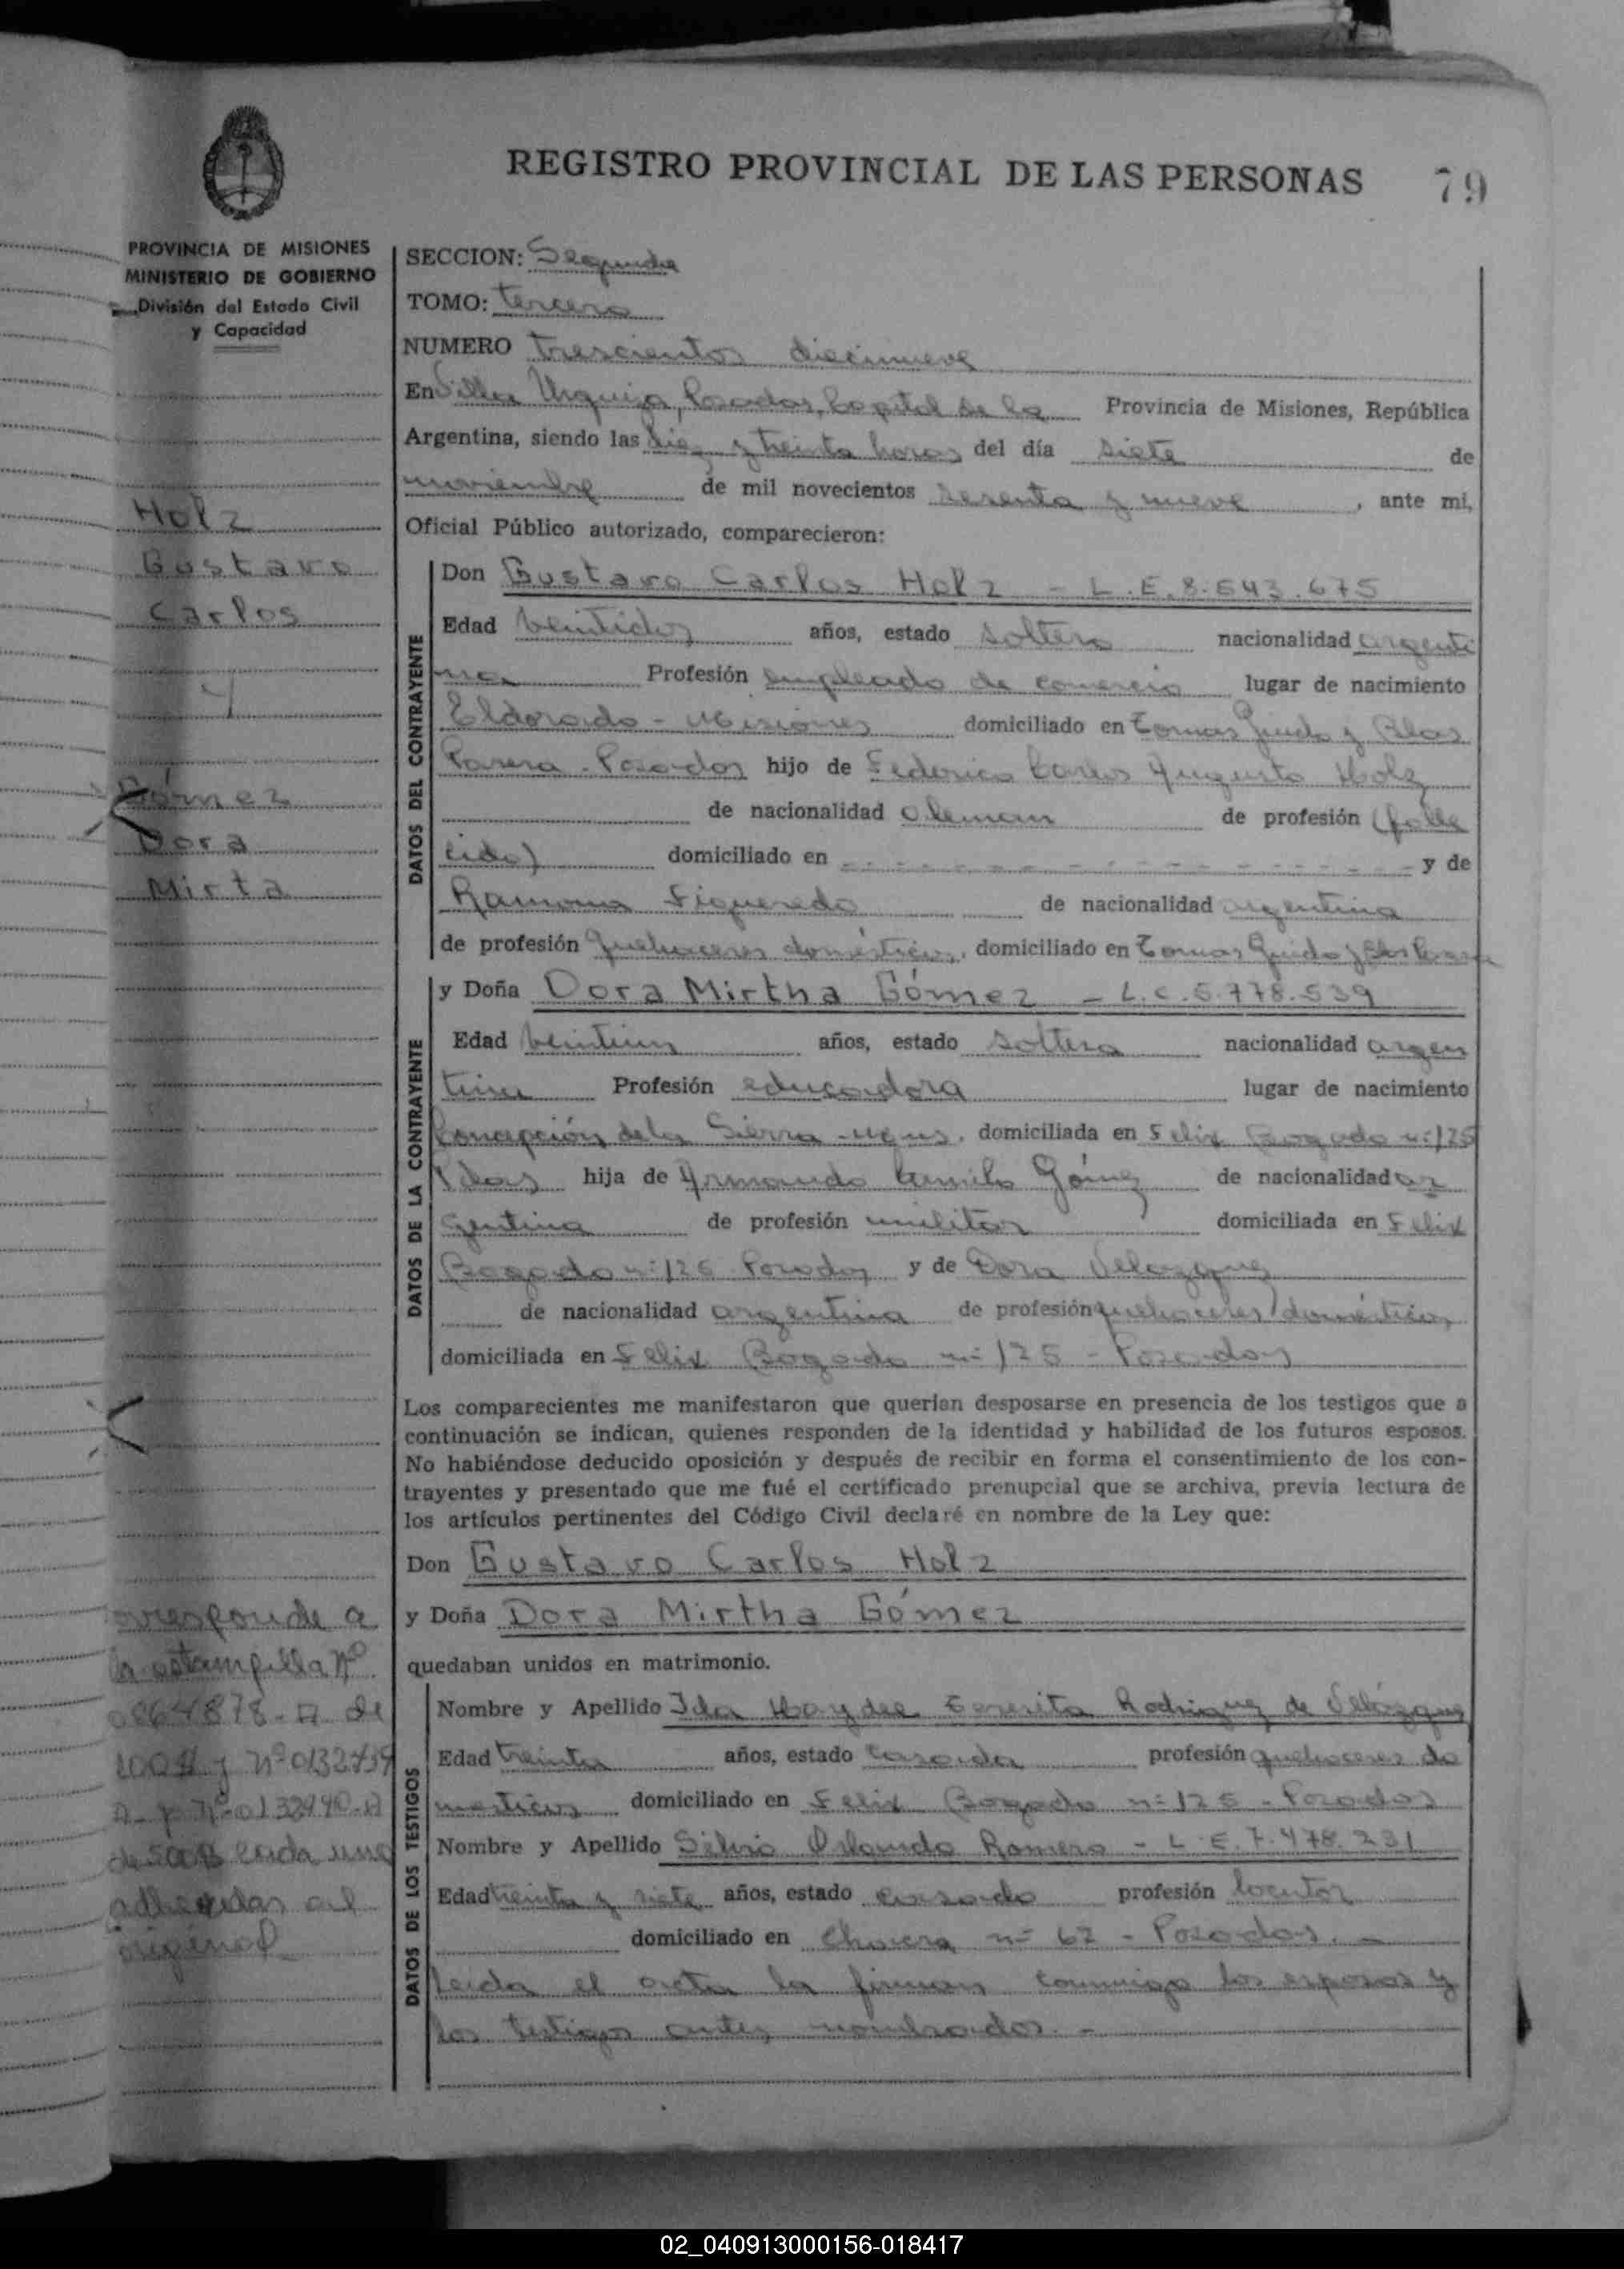 REGISTRO PROVINCIAL DE LAS PERSONAS 79
PROVINCIA DE MISIONES
MINISTERIO DE GOBIERNO
División del Estado Civil
y Capacidad
Holz
Gustavo
Carlos
y
Gómez
Dora
Mirta
corresponde a
la estampilla Nº
0864878-A de
100$ y Nº 0132439
A- y Nº 0132440-A
de 500$ cada una
adheridas al
original
SECCION: Segunda
TOMO: tercero
NUMERO trescientos diecinueve
En Villa Urquiza, Posadas, Capital de la Provincia de Misiones, República
Argentina, siendo las diez y treinta horas del día siete de
noviembre de mil novecientos sesenta y nueve, ante mi,
Oficial Público autorizado, comparecieron:
DATOS DEL CONTRAYENTE
Don Gustavo Carlos Holz - L.E. 8.543.675
Edad veintidos años, estado soltero nacionalidad argenti
na Profesión empleado de comercio lugar de nacimiento
Eldorado - Misiones domiciliado en Tomas Guido y Blas
Parera - Posadas hijo de Federico Carlos Augusto Holz
de nacionalidad aleman de profesión (falle
cido) domiciliado en - - - - - - - - - - - - y de
Ramona Figueredo de nacionalidad argentina
de profesión quehaceres domésticos, domiciliado en Tomas Guido y Blas Parera
DATOS DE LA CONTRAYENTE
y Doña Dora Mirtha Gómez - L.C. 5.778.539
Edad veintiun años, estado soltera nacionalidad argen
tina Profesión educadora lugar de nacimiento
Concepción de la Sierra - Mnes. domiciliada en Felix Bogado nº 125
Pdas hija de Armando Camilo Gómez de nacionalidad ar
gentina de profesión militar domiciliada en Felix
Bogado nº 125 Posadas y de Dora Velazquez
de nacionalidad argentina de profesión quehaceres domésticos,
domiciliada en Felix Bogado nº 125 - Posadas
Los comparecientes me manifestaron que querían desposarse en presencia de los testigos que a
continuación se indican, quienes responden de la identidad y habilidad de los futuros esposos.
No habiéndose deducido oposición y después de recibir en forma el consentimiento de los con-
trayentes y presentado que me fué el certificado prenupcial que se archiva, previa lectura de
los artículos pertinentes del Código Civil declaré en nombre de la Ley que:
Don Gustavo Carlos Holz
y Doña Dora Mirtha Gómez
quedaban unidos en matrimonio.
DATOS DE LOS TESTIGOS
Nombre y Apellido Ida Haydee Teresita Rodriguez de Velázquez
Edad treinta años, estado casada profesión quehaceres do
mesticos domiciliado en Felix Bogado nº 125 - Posadas
Nombre y Apellido Silvio Orlando Romero - L.E. 7.478.231
Edad treinta y siete años, estado casado profesión locutor
domiciliado en nº 62 - Posadas. -
Leida el acta la firman conmigo los esposos y
los testigos antes nombrados. -
02_040913000156-018417